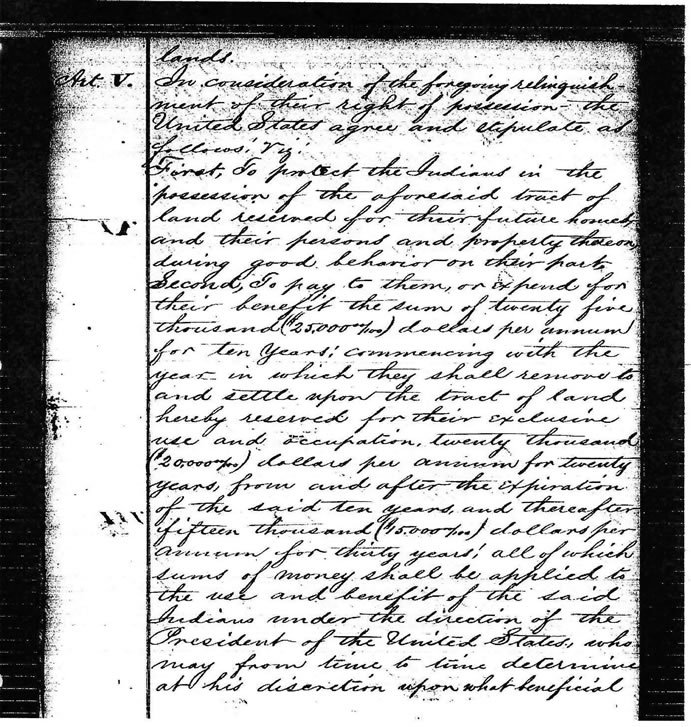 lands.
Art. V. In consideration of the foregoing relinquish-
ment of their right of possession - the
United States agree and stipulate as
follows; Viz:
First, To protect the Indians in the
possession of the aforesaid tract of
land reserved for their future homes,
and their persons and property thereon,
during good behavior on their part.
Second, To pay to them, or expend for
their benefit the sum of twenty five
thousand ($25,000 00/100) dollars per annum
for ten years; commencing with the
year in which they shall remove to
and settle upon the tract of land
hereby reserved for their exclusive
use and occupation, twenty thousand
($20,000 00/100) dollars per annum for twenty
years, from and after the expiration
of the said ten years, and thereafter
fifteen thousand ($15,000 00/100) dollars per
annum for thirty years; all of which
sums of money shall be applied to
the use and benefit of the said
Indians under the direction of the
President of the United States, who
may from time to time determine
at his discretion upon what beneficial